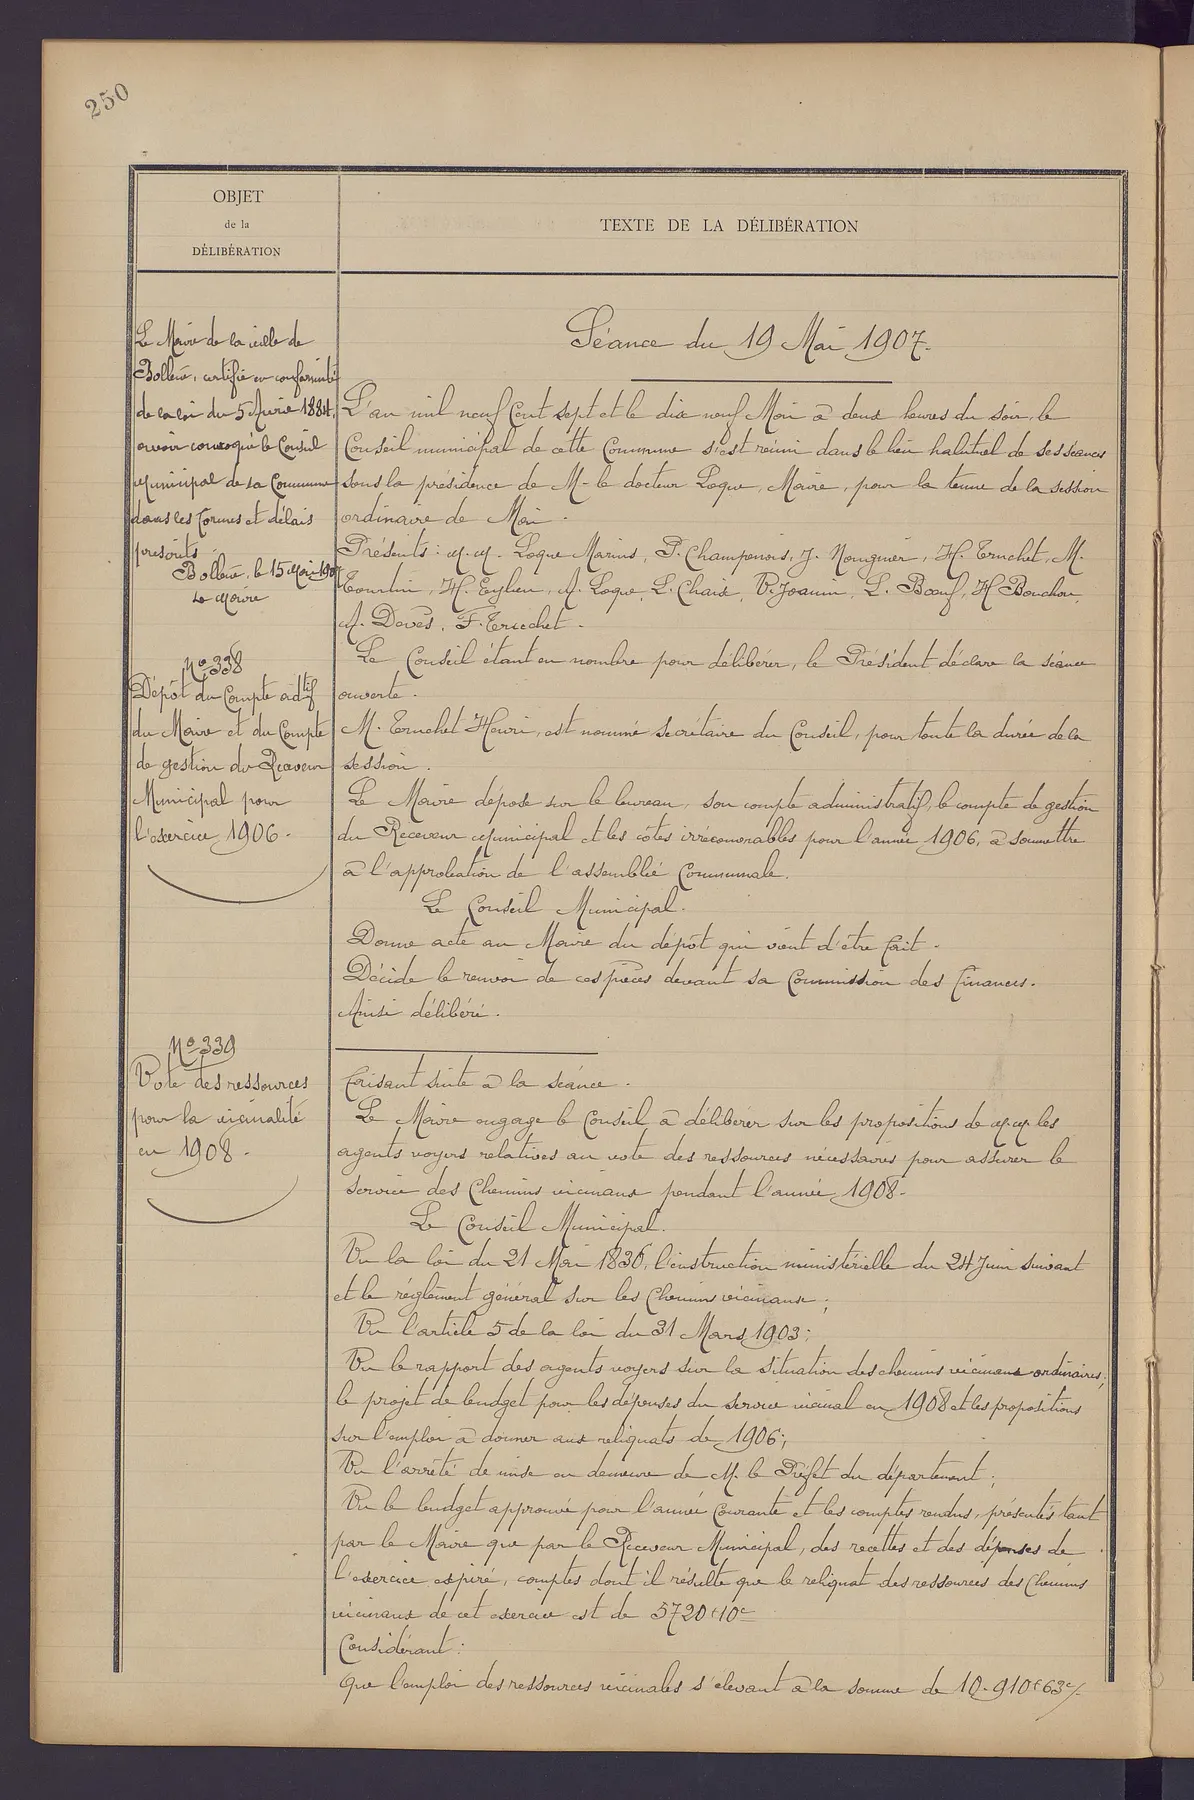 250
OBJET
de la
DÉLIBÉRATION
TEXTE DE LA DÉLIBÉRATION
Le Maire de la ville de
Bollène, certifie en conformité
de la loi du 5 Avril 1884,
avoir convoqué le Conseil
Municipal de sa Commune
dans les formes et délais
prescrits.
Bollène, le 15 Mai 1907
Le Maire
No 338
Dépôt du Compte adtif
du Maire et du Compte
de gestion du Receveur
Municipal pour
l'exercice 1906.
No 339
Vote des ressources
pour la vicinalité
en 1908.
Séance du 19 Mai 1907.
L'an mil neuf Cent sept et le dix neuf Mai à deux heures du soir, le
Conseil municipal de cette Commune s'est réuni dans le lieu habituel de ses séances
sous la présidence de M. le docteur Loque, Maire, pour la tenue de la session
ordinaire de Mai.
Présents : M.M. Loque Marius, P. Champenois, J. Nougnier, H. Truchet, M.
Tourtin, H. Eylieu, A. Loque, L. Chaix, V. Joannin, L. Bœuf, H Bouchon,
A. Devès, F. Truchet.
Le Conseil étant en nombre pour délibérer, le Président déclare la séance
ouverte.
M. Truchet Henri, est nommé secrétaire du Conseil, pour toute la durée de la
session.
Le Maire dépose sur le bureau, son compte administratif, le compte de gestion
du Receveur Municipal et les côtes irrécouvrables pour l'année 1906, à soumettre
à l'approbation de l'assemblée Communale.
Le Conseil Municipal.
Donne acte au Maire du dépôt qui vient d'être fait.
Décide le renvoi de ces pièces devant sa Commission des Finances.
Ainsi délibéré.
Faisant suite à la séance.
Le Maire engage le Conseil à délibérer sur les propositions de M.M. les
agents voyers relatives au vote des ressources nécessaires pour assurer le
service des Chemins vicinaux pendant l'année 1908.
Le Conseil Municipal.
Vu la loi du 21 Mai 1836, l'instruction ministérielle du 24 Juin suivant
et le règlement général sur les Chemins vicinaux ;
Vu l'article 5 de la loi du 31 Mars 1903 ;
Vu le rapport des agents voyers sur la situation des chemins vicinaux ordinaires ;
le projet de budget pour les dépenses du service vicinal en 1908 et les propositions
sur l'emploi à donner aux reliquats de 1906 ;
Vu l'arrêté de mise en demeure de M. le Préfet du département ;
Vu le budget approuvé pour l'année Courante et les comptes rendus, présentés tant
par le Maire que par le Receveur Municipal, des recettes et des dépenses de
l'exercice expiré, comptes dont il résulte que le reliquat des ressources des Chemins
vicinaux de cet exercice est de 5720 f 10 c
Considérant :
Que l'emploi des ressources vicinales s'élevant à la somme de 10.910 f 63 c/.